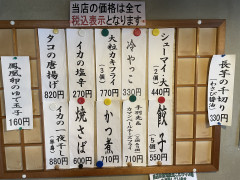 当店の価格は全て
税込表示となります
長芋の千切り
(わさび醤油)
330円
シューマイ(大)
(2個)
440円
冷やっこ
330円
大粒カキフライ
770円
イカの塩辛
270円
タコの唐揚げ
820円
鳳凰卵のゆで玉子
160円
餃子
(5個)
550円
710円
かつ煮
710円
焼そば
600円
イカの一夜干し
880円